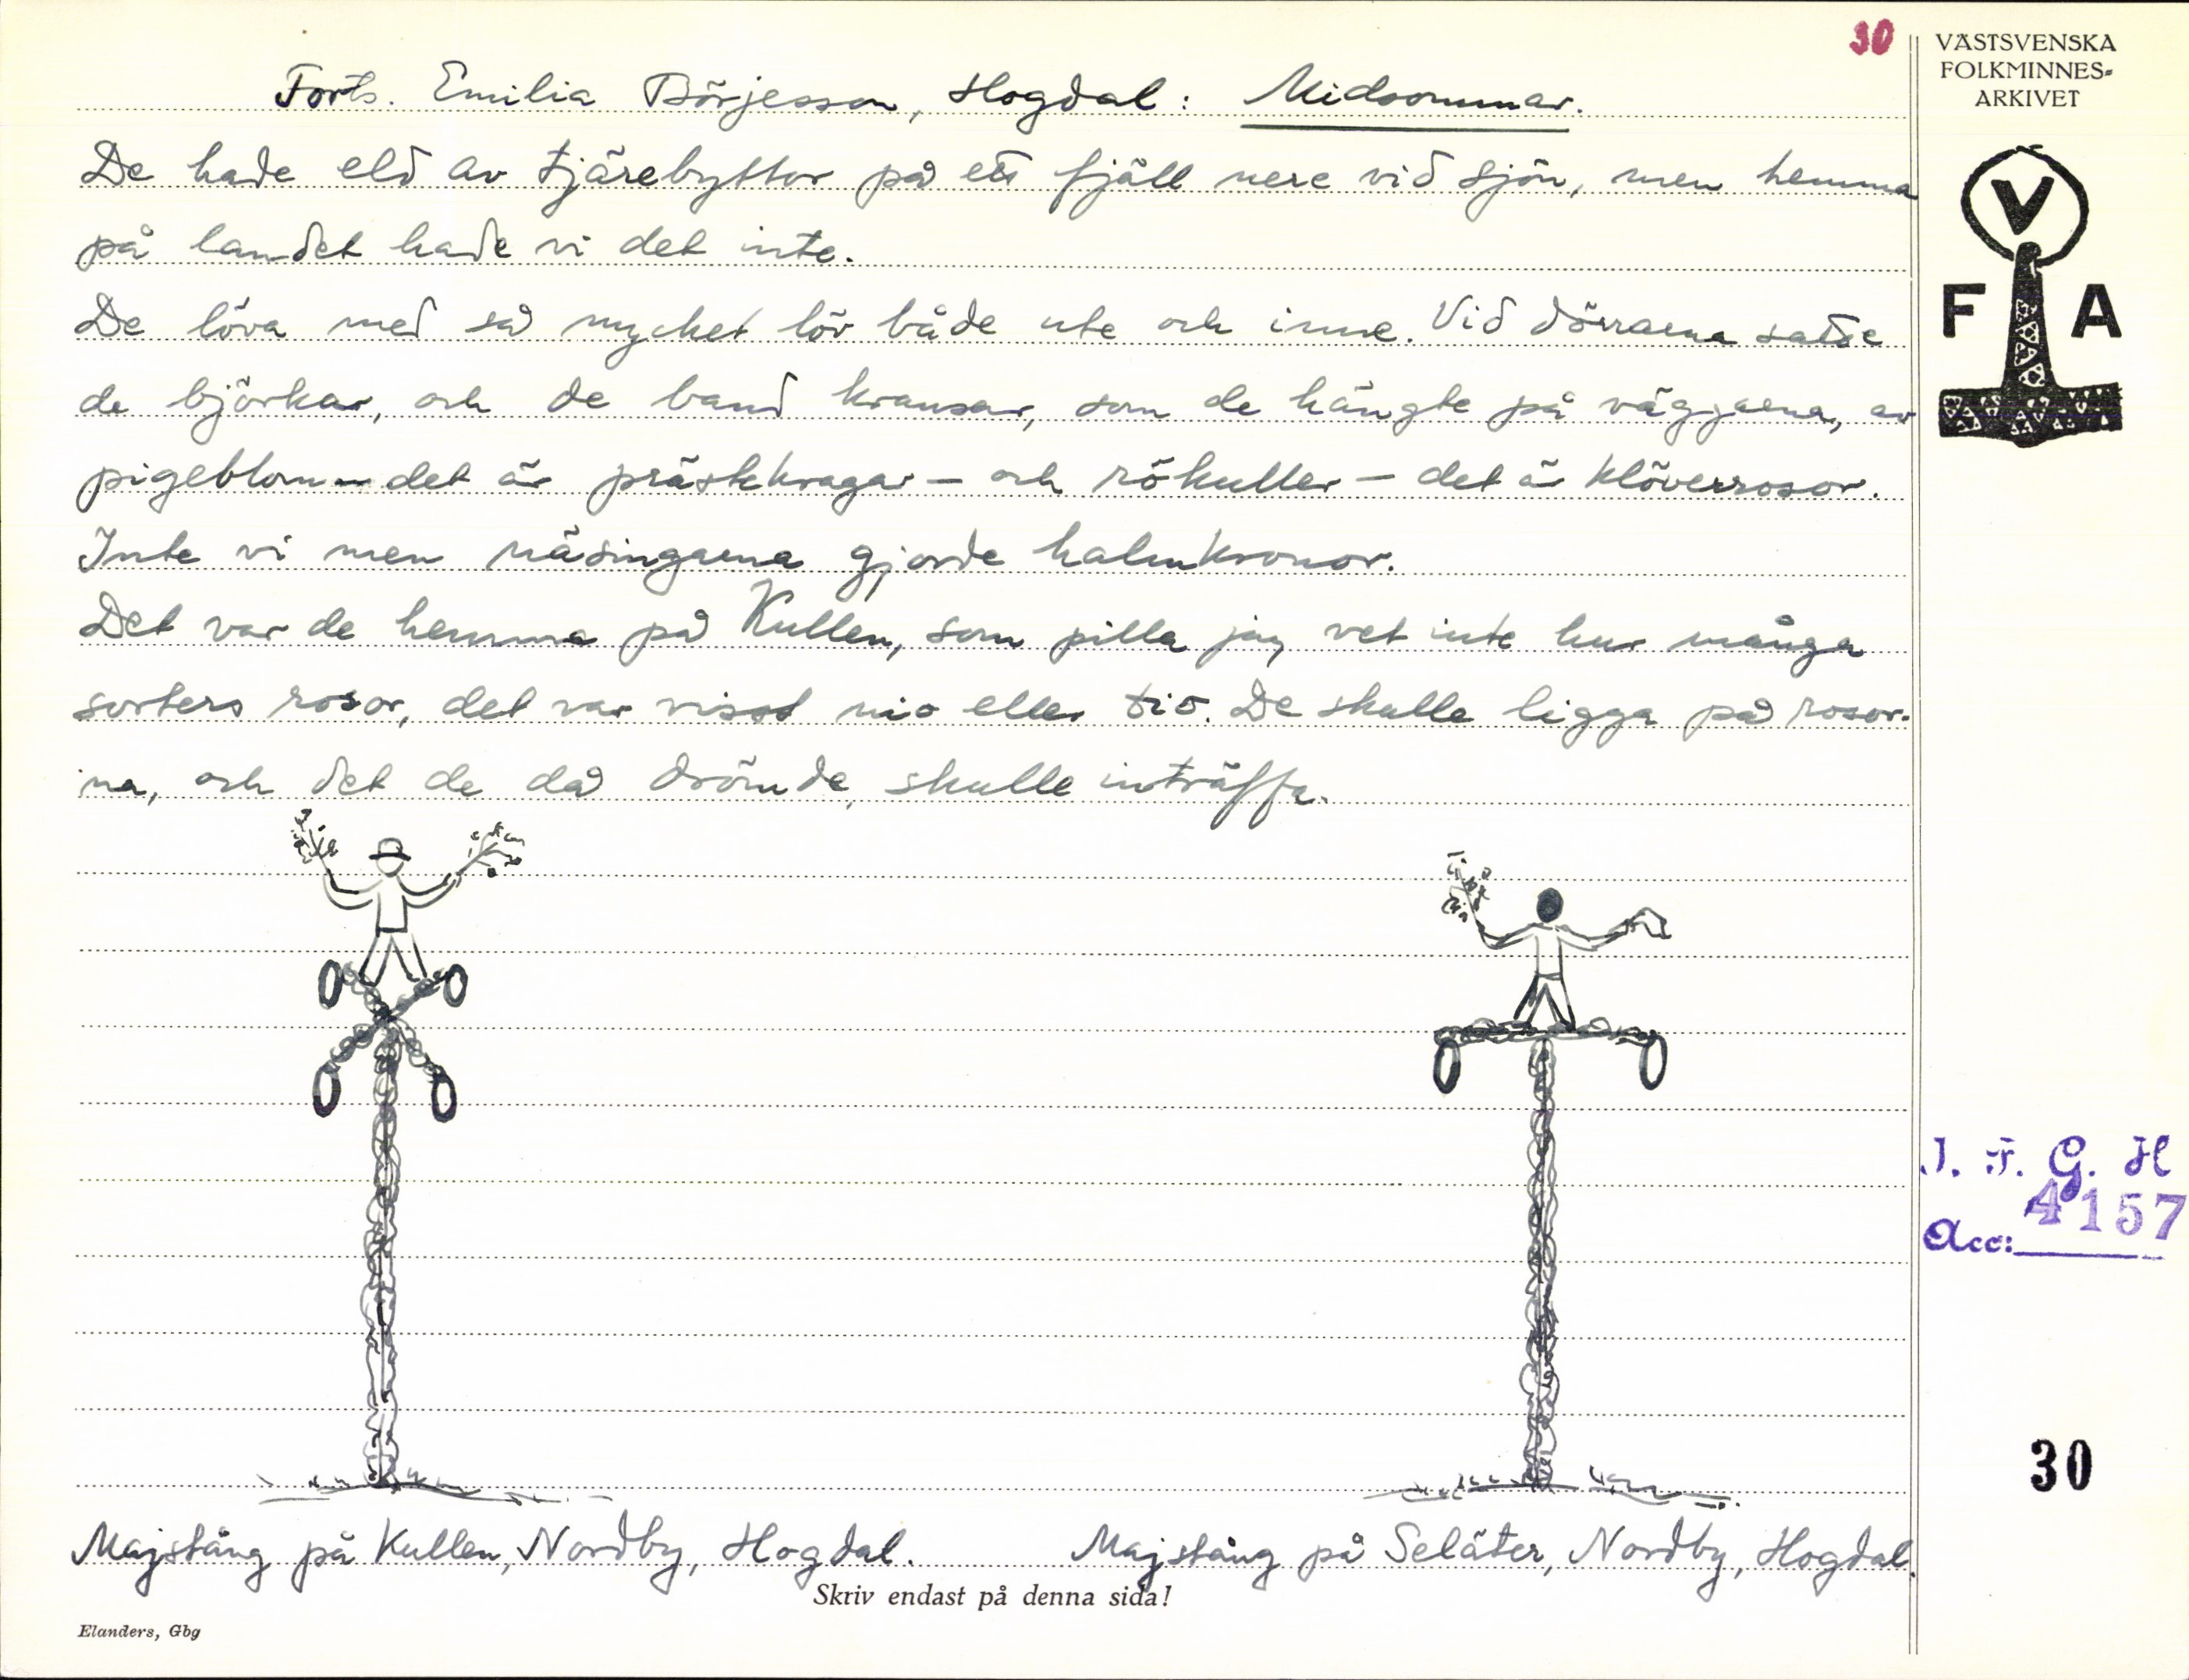 30
VÄSTSVENSKA
FOLKMINNES=
ARKIVET
Forts. Emilia Börjesson, Hogdal: Midsommar.
De hade eld av tjärebyttor på ett fjäll nere vid sjön, men hemma
på landet hade vi det inte.
De löva med så mycket löv både ute och inne. Vid dörrarna satte
de björkar, och de band kransar, som de hängte på väggarna, av
pigeblom – det är prästkragar – och rökuller – det är klöverrosor.
Inte vi men näsingarna gjorde halmkronor.
Det var de hemma på Kullen, som pilla jag vet inte hur många
sorters rosor, det var visst nio eller tio. De skulle ligga på rosor-
na, och det de då drömde, skulle inträffa.
V
F A
I. F. G. H
4157
Acc:
30
Majstång på Kullen, Nordby, Hogdal. Majstång på Seläter, Nordby, Hogdal.
Skriv endast på denna sida!
Elanders, Gbg